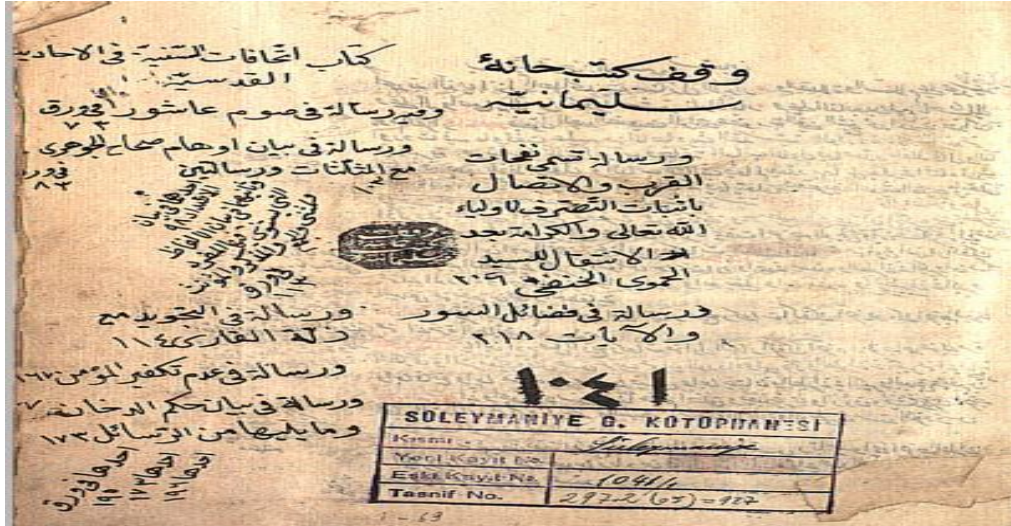 وقف كتب خانهٔ
سليمانيه
كتاب اتحافات السنية فى الاحاديث
القدسية
وفيه رسالة فى صوم عاشورا فى ورق
٧٣
ورسالة فى بيان اوهام صحاح الجوهرى
مع المثلثات ورسالتين
٨٣
ورسالة فى التجويد مع
زلة القارى ١١٤
ورسالة فى عدم تكفير المؤمن ١٦٧
ورسالة فى بيان حكم الدخان
وما يليها من الرسائل ١٧٣
احدها ١٧٣
احدها ١٩٦
احدها فى ورق
ورسالة تسمى نفحات
القرب والاتصال
باثبات التصرف لاولياء
الله تعالى والكرامة بعد
الانتقال للسيد
الحموى الحنفى ٢٠٩
ورسالة فى فضائل السور
والآيات ٢١٨
١٠٤١
SÜLEYMANİYE G. KÜTÜPHANESİ
Kısmı Süleymaniye
Yeni Kayıt No.
Eski Kayıt No. 1041/1
Tasnif No. 297.2
1 - 69